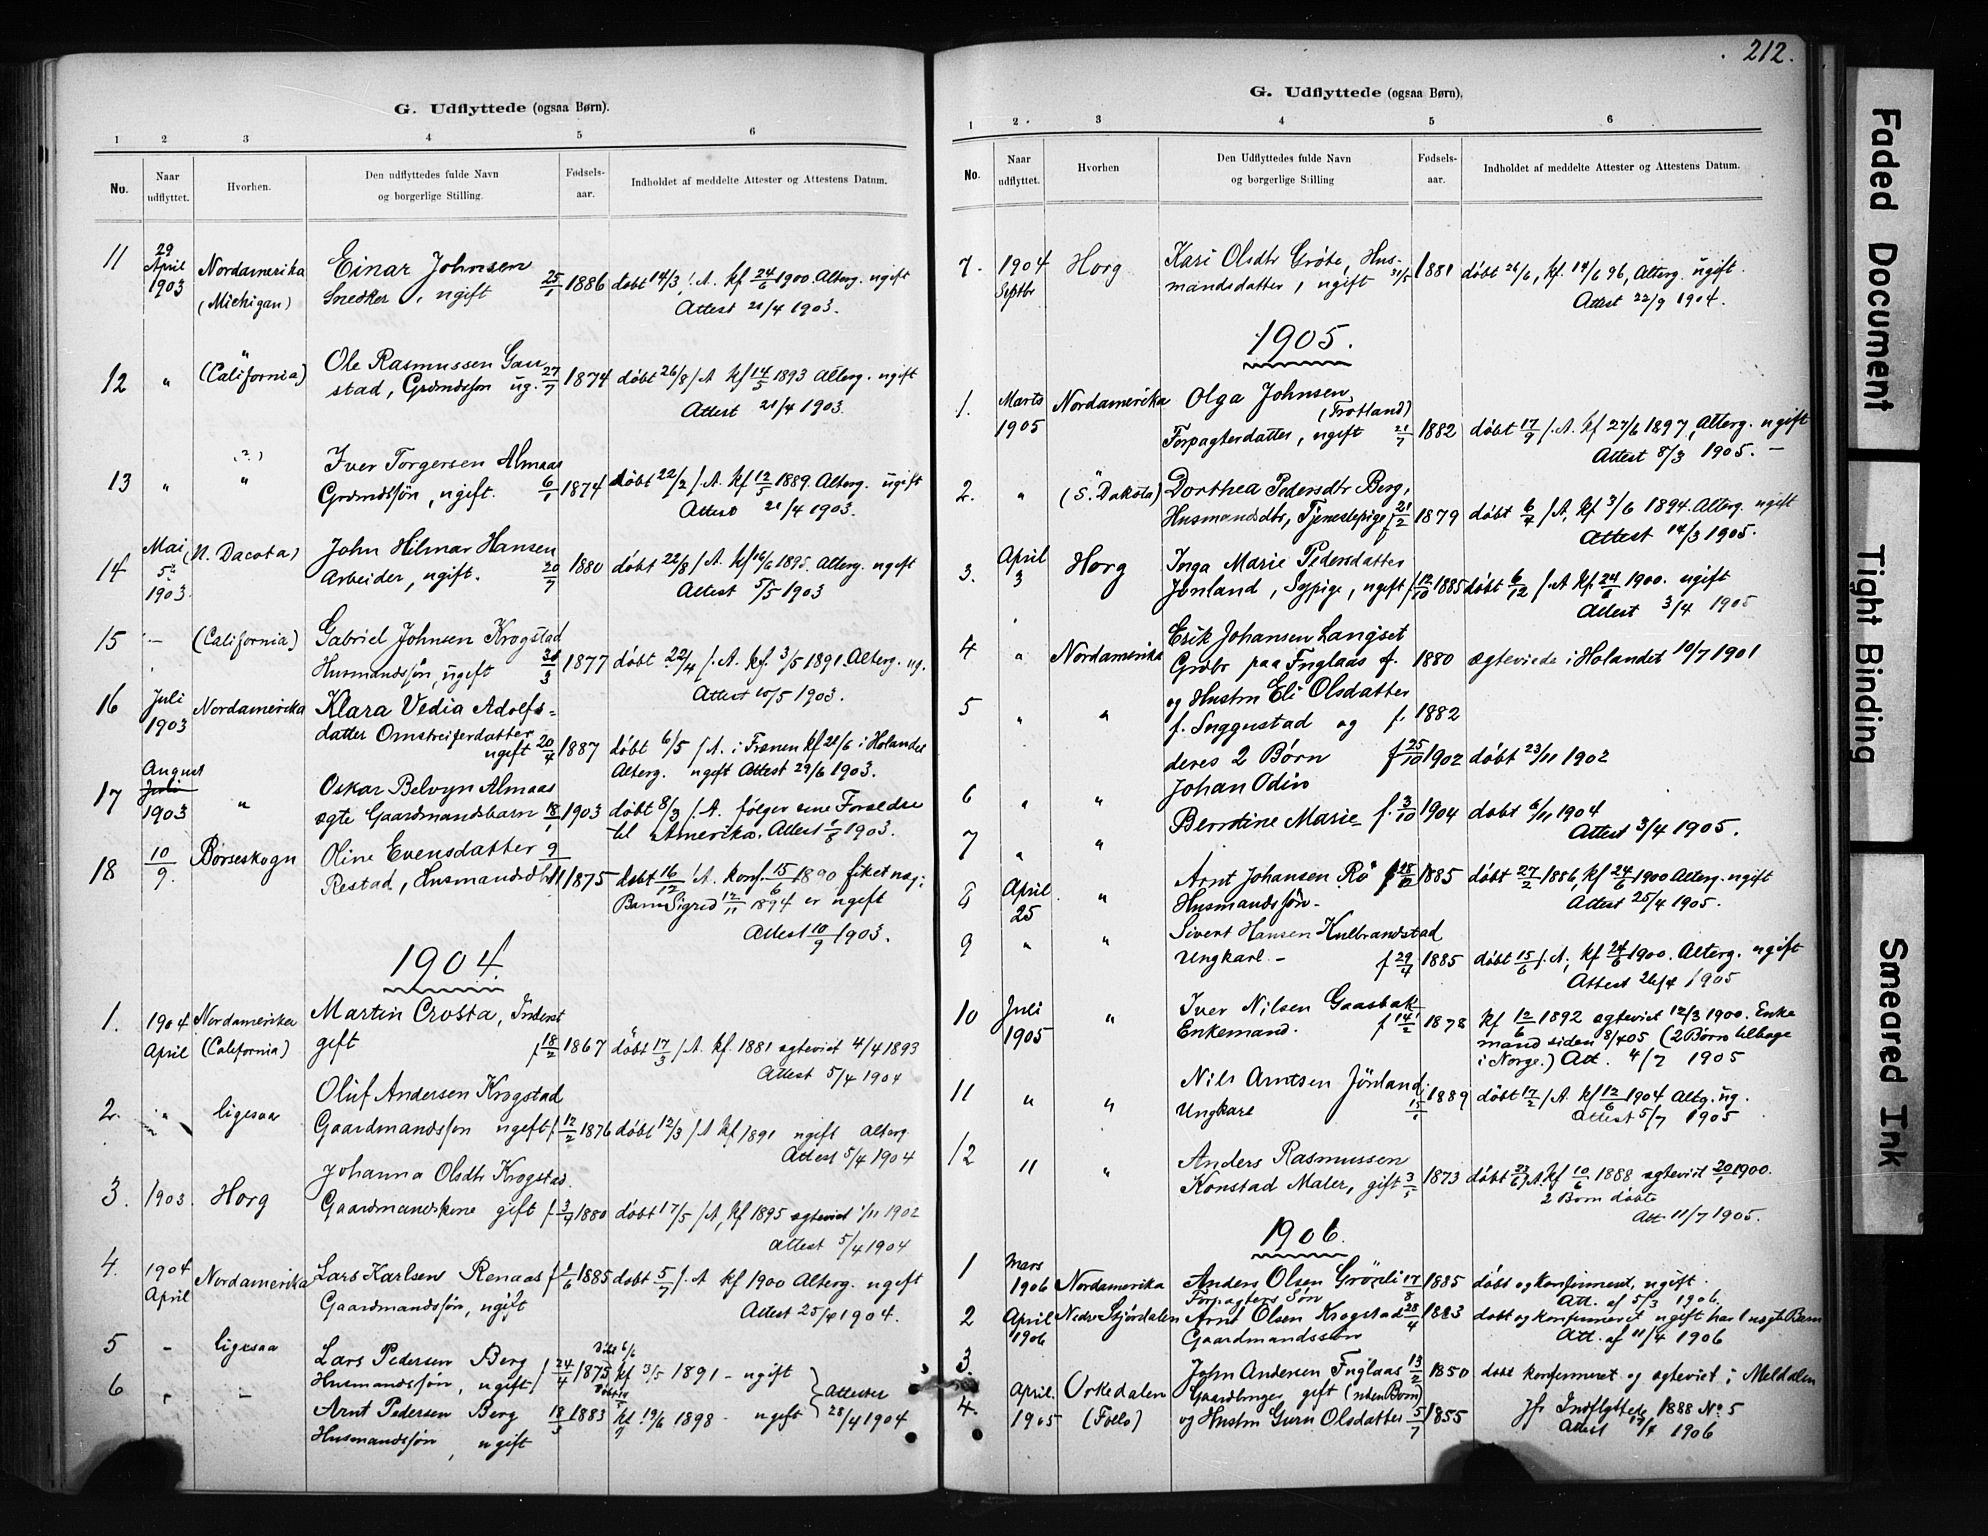 G. Udflyttede (ogsaa Børn).
1 2 3 4 5 6
No. Naar udflyttet. Hvorhen. Den udflyttedes fulde Navn og borgerlige Stilling. Fødsels-aar. Indholdet af meddelte Attester og Attestens Datum.
11 29 April 1903 Nordamerika (Michigan) Einar Johnsen
Snedker, ugift 25/1 1886 døbt 14/3 /. A. kf 24/6 1900 Alterg. ugift
Attest 21/4 1903.
12 " " (California) Ole Rasmussen Gau-
stad, Grdmdssøn ug. 27/7 1874 døbt 26/8 /. A kf 14/5 1893 Alterg. ugift
Attest 21/4 1903.
13 " (?) " Iver Torgersen Almaas
Grdmdssøn, ugift. 6/1 1874 døbt 22/2 /. A. kf 12/5 1889. Alterg. ugift
Attest 21/4 1903.
14 Mai 5te 1903 (N. Dacota) John Hilmar Hansen
Arbeider, ugift. 20/7 1880 døbt 22/8 /. A. kf 16/6 1895. Alterg. ugift
Attest 5/5 1903
15 — (California) Gabriel Johnsen Krogstad
Husmandssøn, ugift 3 1877 døbt 22/4 /. A. kf. 3/5 1891 Alterg. ug.
Attest 10/5 1903.
16 Juli 1903 Nordamerika Klara Vedia Adolfs-
datter Omstreiferdatter
ugift 20/4 1887 døbt 6/5 /. A. i Frænen kf 21/6 i Holandet
Alterg. ugift Attest 29/6 1903.
17 August Juli 1903 " Oskar Belvyn Almaas
ægte Gaardmandsbarn 18/1 1903 døbt 8/3 /. A. følger sine Forældre
til Amerika. Attest 1/8 1903.
18 10/9. Børseskogn Oline Evensdatter 9
Restad, Husmandsdtr 11 1875 døbt 16/12 /. A. konf. 15/6 1890 fiket uæg:
Barn Sigrid 12/11 1894 er ugift
Attest 10/9 1903.
1904
1. 1904 April Nordamerika (California) Martin Crosta, Inderst
gift f 18/2 1867 døbt 17/3 /. A. kf. 1881 ægteviet 4/4 1893
Attest 5/4 1904
2. " ligesaa Oluf Andersen Krogstad
Gaardmandssøn ugift f. 12/2 1876 døbt 12/3 /. A kf 1891 ugift alterg
Attest 5/4 1904
3. 1903. Horg Johanna Olsdtr Krogstad.
Gaardmandskone gift f. 3/4 1880 døbt 17/5 /. A, kf 1895 ægteviet 1/11 1902
Attest 5/4 1904
4. 1904 April Nordamerika Lars Karlsen Renaas f 1/6 1885 døbt 5/7 /. A kf 1900 Alterg. ugift
Gaardmandssøn, ugift Attest 25/4 1904.
5 - ligesaa Lars Pedersen Berg
Husmandssøn, ugift f 24/4 1875 døbt 6/6 kf 3/5 1891 - ugift
6 " - Arnt Pedersen Berg 18/3 1883 kf 19/6 1898 - ugift Attester 28/4 1904
Husmandssøn, ugift
212.
G. Udflyttede (ogsaa Børn).
1 2. 3 4 5 6
No. Naar udflyttet. Hvorhen. Den Udflyttedes fulde Navn og borgerlige Stilling Fødsels-aar. Indholdet af meddelte Attester og Attestens Datum.
7. 1904 Septbr Horg Kari Olsdtr Grøte, Hus-
mandsdatter, ugift 31/5 1881 døbt 26/6, kf. 14/6 96, Alterg. ugift.
Attest 22/9 1904.
1905.
1. Marts 1905 Nordamerika Olga Johnsen
(Frotland)
Forpagterdatter, ugift 21/7 1882 døbt 17/9 /. A. kf 27/6 1897, Alterg. ugift
Attest 8/3 1905. —
2. " (S. Dakota) Dorthea Pedersdtr Berg,
Husmandsdtr, Tjenestepige f 21/2 1879 døbt 6/4 /. A, kf 3/6 1894. Alterg. ugift
Attest 14/3 1905.
3. April 3 Horg Inga Marie Pedersdatter
Jønland, Sypige, ugift f. 12/10 1885 døbt 6/12 /. A kf. 24/6 1900. ugift
Attest 3/4 1905
4 " Nordamerika Erik Johansen Langset
Grdbr paa Fuglaas f. 1880 ægteviede i Holandet 10/7 1901
5 " " og Hustru Eli Olsdatter
f. Snggustad og f. 1882
deres 2 Børn f 25/10 1902 døbt 23/11 1902
6 " " Johan Odin
7 " " Berntine Marie f. 3/10 1904 døbt 6/11 1904
Attest 3/4 1905.
8 April 25 " Arnt Johansen Rø f 28/12 1885 døbt 27/2 1886, kf 24/6 1900 Alterg. ugift
Husmandssøn- Attest 25/4 1905.
9 " " Sivert Hansen Kulbrandstad
Ungkarl - f 29/4 1885 døbt 15/6 /. A., kf 24/6 1900. Alterg. ugift
Attest 26/4 1905
10 Juli 1905 " Iver Nilsen Gaasbak
Enkemand. f 14/2 1878 kf 12/6 1892 ægteviet 12/3 1900. Enke
mand siden 8/4 05 (2 Børn tilbage
i Norge.) Att. 4/7 1905
11 " " Nils Arntsen Jønland
Ungkarl 15/1 1889 døbt 17/2 /. A. kf 12/6 1904 Altg. ug.
Attest 5/7 1905
12 " " Anders Rasmussen
Konstad Maler, gift 3/5 1873 døbt 22/6 /. A. kf 10/6 1888 ægteviet 20/1 1900.
2 Børn døbte
Att 11/7 1905.
1906.
1 Mars 1906 Nordamerika Anders Olsen Grønli 17/8 1885 døbt og konfirmeret, ugift.
Forpagters Søn Att. af 5/3 1906.
2 April 1906 Nedre Stjørdalen Arnt Olsen Krogstad 28/4 1883 døbt og konfirmeret ugift har 1 uægte Barn
Gaardmandssøn Att. af 11/4 1906
3. John Andersen Fuglaas 13/2 1850 døbt konfirmeret og ægteviet i Meldalen
April. Orkedalen Gaardbruger gift (uden Børn)
4. 1905 (Follo) og Hustru Guru Olsdatter 5/7 1855 Jfr Indflyttede 1888 No 5
Attest 17/4 1906
Faded Document
Tight Binding
Smeared Ink